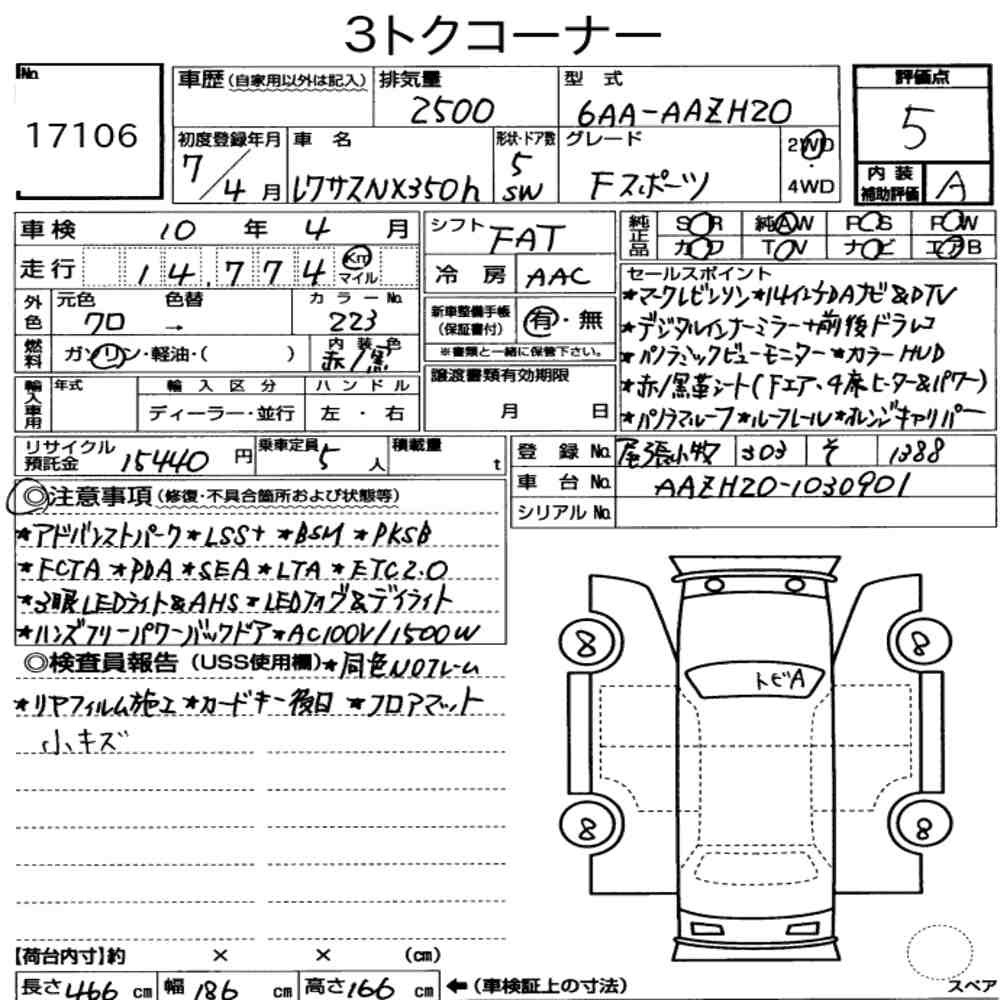 3トクコーナー
No.
17106
車歴(自家用以外は記入)
排気量
2500
型 式
6AA-AAZH20
評価点
5
初度登録年月
7/4月
車 名
レクサスNX350h
形状・ドア数
5
SW
グレード
Fスポーツ
2WD
・
4WD
内 装
補助評価
A
車検 10 年 4 月
シフト
FAT
純正品
SR 純AW PS PW
カワ TV ナビ エアB
走行 14,774 Km マイル
冷 房 AAC
セールスポイント
★マークレビンソン★14インチDAナビ&DTV
★デジタルインナーミラー+前後ドラレコ
★パノラミックビューモニター★カラーHUD
★赤/黒革シート(Fエア、4席ヒーター&パワー)
★パノラマルーフ★ルーフレール★オレンジキャリパー
外色
元色 色替
クロ →
カラーNo.
223
新車整備手帳
(保証書付)
有・無
※書類と一緒に保管下さい。
燃料
ガソリン・軽油・( )
内 装 色
赤/黒
輸入車用
年式
輸 入 区 分
ディーラー・並行
ハ ン ド ル
左 ・ 右
譲渡書類有効期限
月 日
リサイクル
預託金 15440 円
乗車定員 5 人
積載量 t
登 録 No. 尾張小牧 303 そ 1388
車 台 No. AAZH20-1030901
シリアルNo.
◎注意事項(修復・不具合箇所および状態等)
★アドバンストパーク★LSS+ ★BSM ★PKSB
★FCTA ★PDA ★SEA ★LTA ★ETC2.0
★3眼LEDライト&AHS★LEDフォグ&デイライト
★ハンズフリーパワーバックドア★AC100V/1500W
◎検査員報告(USS使用欄)★同色NOフレーム
★リヤフィルム施工★カードキー後日 ★フロアマット
小キズ
トビA
8
8
8
8
【荷台内寸】約 × × (cm)
長さ466 cm 幅 186 cm 高さ166 cm ←(車検証上の寸法)
スペア